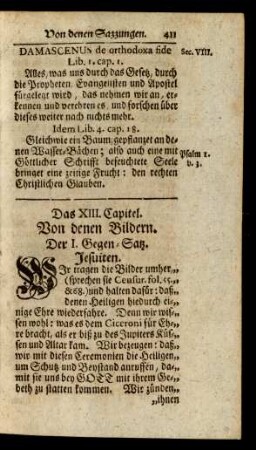 Von denen Sazzungen. 421
DAMASCENUS de orthodoxa fide Sec. VIII.
Lib. 1. cap. 1.
Alles, was uns durch das Gesetz, durch
die Propheten, Evangelisten und Apostel
fürgelegt wird, das nehmen wir an, er-
kennen und verehren es, und forschen über
dieses weiter nach nichts mehr.
Idem Lib. 4. cap. 18.
Gleichwie ein Baum gepflanzet an de-
nen Wasser-Bächen; also auch eine mit Psalm 1.
Göttlicher Schrifft befeuchtete Seele v. 3.
bringet eine zeitige Frucht: den rechten
Christlichen Glauben.
Das XIII. Capitel.
Von denen Bildern.
Der I. Gegen-Satz.
Jesuiten.
WIr tragen die Bilder umher„
(sprechen sie Censur. fol. 55.„
& 68.) und halten dafür: daß„
denen Heiligen hiedurch ei„
nige Ehre wiederfahre. Denn wir wis„
sen wohl: was es dem Ciceroni für Eh„
re bracht, als er biß zu des Jupiters Küs„
sen und Altar kam. Wir bezeugen: daß„
wir mit diesen Ceremonien die Heiligen„
um Schutz und Beystand anruffen, da„
mit sie uns bey GOTT mit ihrem Ge„
beth zu statten kommen. Wir zünden„
„ihnen